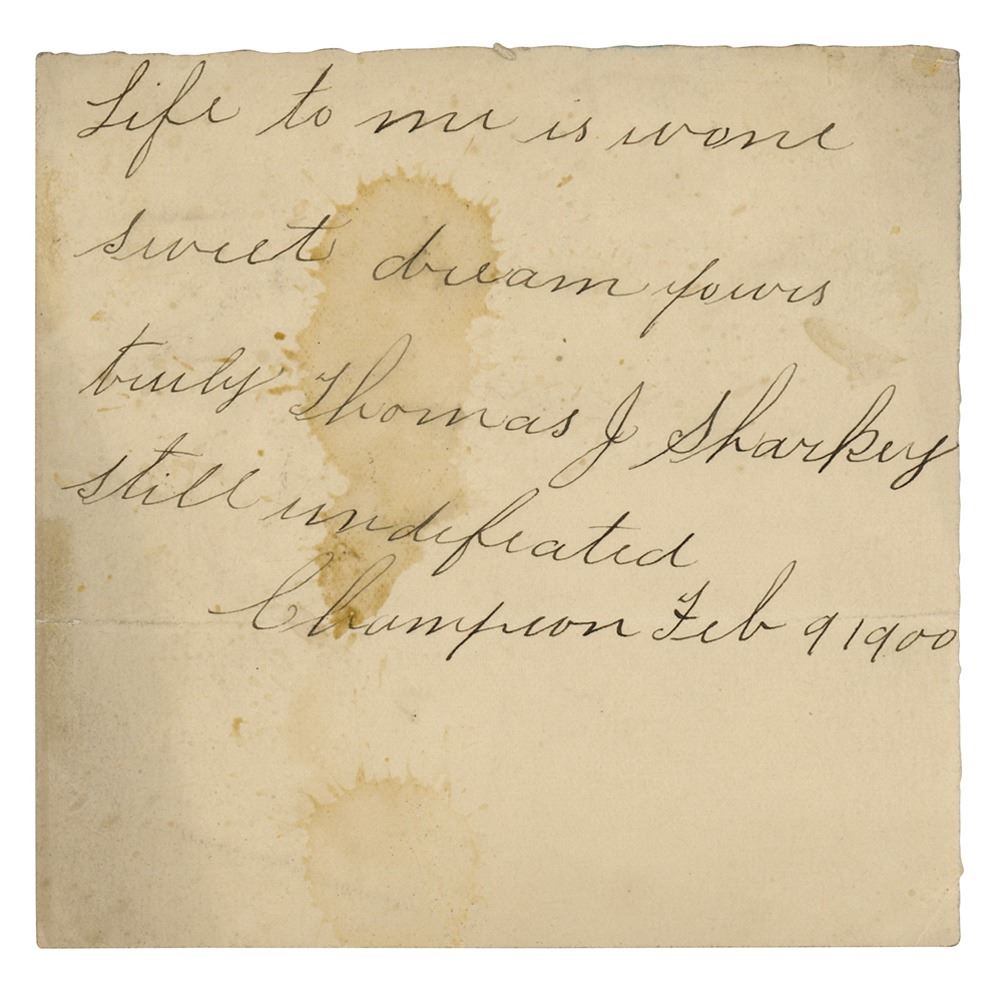 Life to me is wone
sweet dream yours
truly Thomas J Sharkey
still undefeated
Champion Feb 9 1900